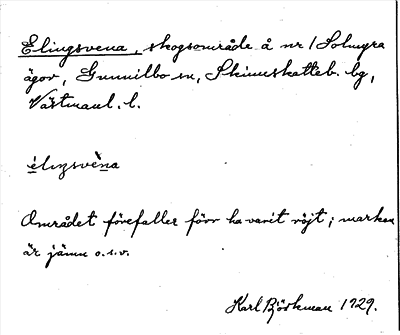 Elingsvena, skogsområde å nr 1 Solmyra
ägor, Gunnilbo sn, Skinnskatteb. bg,
Västmanl. l.
élıŋsvèna
Området förefaller förr ha varit röjt; marken
är jämn o.s.v.
Karl Björkman 1929.